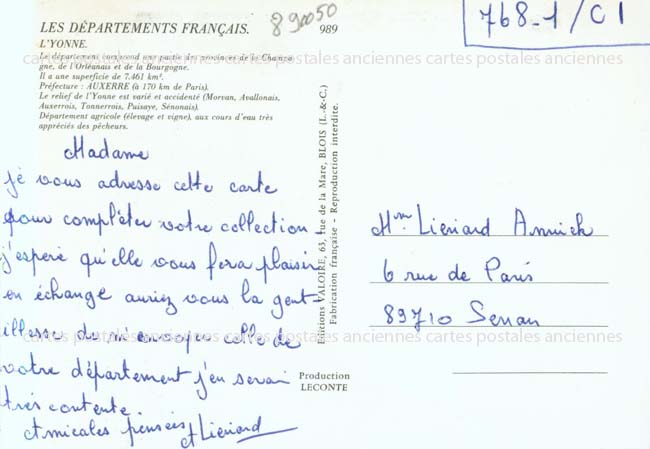 890050
768-1/C1
LES DÉPARTEMENTS FRANÇAIS.
989
L'YONNE.
Le département comprend une partie des provinces de la Champa-
gne, de l'Orléanais et de la Bourgogne.
Il a une superficie de 7.461 km².
Préfecture : AUXERRE (à 170 km de Paris).
Le relief de l'Yonne est varié et accidenté (Morvan, Avallonais,
Auxerrois, Tonnerrois, Puisaye, Sénonais).
Département agricole (élevage et vigne), aux cours d'eau très
appréciés des pêcheurs.
cartes postales anciennes cartes postales anciennes cartes postales anciennes
Madame
je vous adresse cette carte
pour compléter votre collection
j'espère qu'elle vous fera plaisir
en échange auriez vous la gent-
illesse de m'envoyer celle de
votre département j'en serai
très contente.
Amicales pensées A Liénard
cartes postales anciennes cartes postales anciennes cartes postales anciennes
Editions VALOIRE, 63, rue de la Mare, BLOIS (L.-&-C.)
Fabrication française - Reproduction interdite.
Production
LECONTE
Mm Liénard Annick
6 rue de Paris
89710 Senan